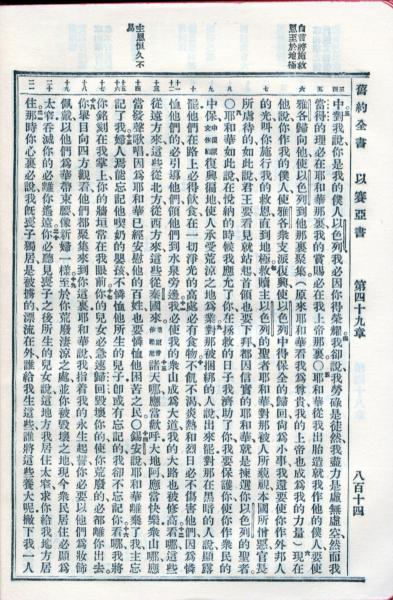 舊約全書 以賽亞書 第四十九章 八百十四
中對我說你是我的僕人以色列我必因你得榮耀我卻說我勞碌是徒然我盡力是虛無虛空然而我
當得的理必在耶和華那裏我的賞賜必在我上帝那裏○耶和華從我出胎造就我作他的僕人要使
雅各歸向他使以色列到他那裏聚集(原來耶和華看我為尊貴我的上帝也成為我的力量)現在
他說你作我的僕人使雅各衆支派復興使以色列中得保全的歸回尚為小事我還要使你作外邦人
的光叫你施行我的救恩直到地極救贖主以色列的聖者耶和華對那被人所藐視本國所憎惡官長
所虐待的如此說君王要看見就站起首領也要下拜都因信實的耶和華就是揀選你以色列的聖者
○耶和華如此說在悅納的時候我應允了你在拯救的日子我濟助了你我要保護你使你作衆民的
中保復興徧地使人承受荒涼之地為業對那被捆綁的人說出來罷對那在黑暗的人說顯露罷
他們在路上必得飲食在一切淨光的高處必有食物不飢不渴炎熱和烈日必不傷害他們因為憐
恤他們的必引導他們領他們到水泉旁邊我必使我的衆山成為大道我的大路也被修高看哪這些
從遠方來這些從北方從西方來這些從秦國來諸天哪應當歡呼大地阿應當快樂衆山哪應
當發聲歌唱因為耶和華已經安慰他的百姓也要憐恤他困苦之民○錫安說耶和華離棄了我主忘
記了我婦人焉能忘記他喫奶的嬰孩不憐恤他所生的兒子即或有忘記的我卻不忘記你看哪我將
你銘刻在我掌上你的牆垣常在我眼前你的兒女必急速歸回毀壞你的使你荒廢的必都離你出去
你舉目向四方觀看他們都聚集來到你這裏耶和華說我指着我的永生起誓你必要以他們為妝飾
佩戴以他們為華帶束腰像新婦一樣至於你荒廢淒涼之處並你被毀壞之地現今衆民居住必顯為
太窄吞滅你的必離你遙遠你必聽見喪子之後所生的兒女說這地方我居住太窄求你給我地方居
住那時你心裏必說我既喪子獨居是被擄的漂流在外誰給我生這些誰將這些養大呢撇下我一人